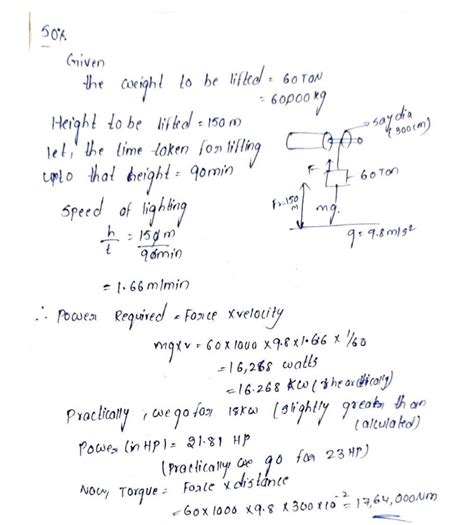 Soln
Given
the weight to be lifted = 60 TON
= 60000 kg
Height to be lifted = 150 m
let, the time taken for lifting
upto that height = 90min
Speed of lighting
h/t = 150 m/90min
= 1.66 m/min
∴ Power Required = Force x velocity
mg x v = 60 x 1000 x 9.8 x 1.66 x 1/60
= 16,268 watts
= 16.268 KW (theoretically)
Practically, we go for 18kw (slightly greater than
calculated)
Power (in HP) = 21.81 HP
(Practically we go for 23 HP)
Now, Torque = Force x distance
= 60 x 1000 x 9.8 x 300 x 10^-2 = 17,64,000Nm
say dia
(300cm)
F
60 TON
150
M
mg.
g = 9.8 m/s²